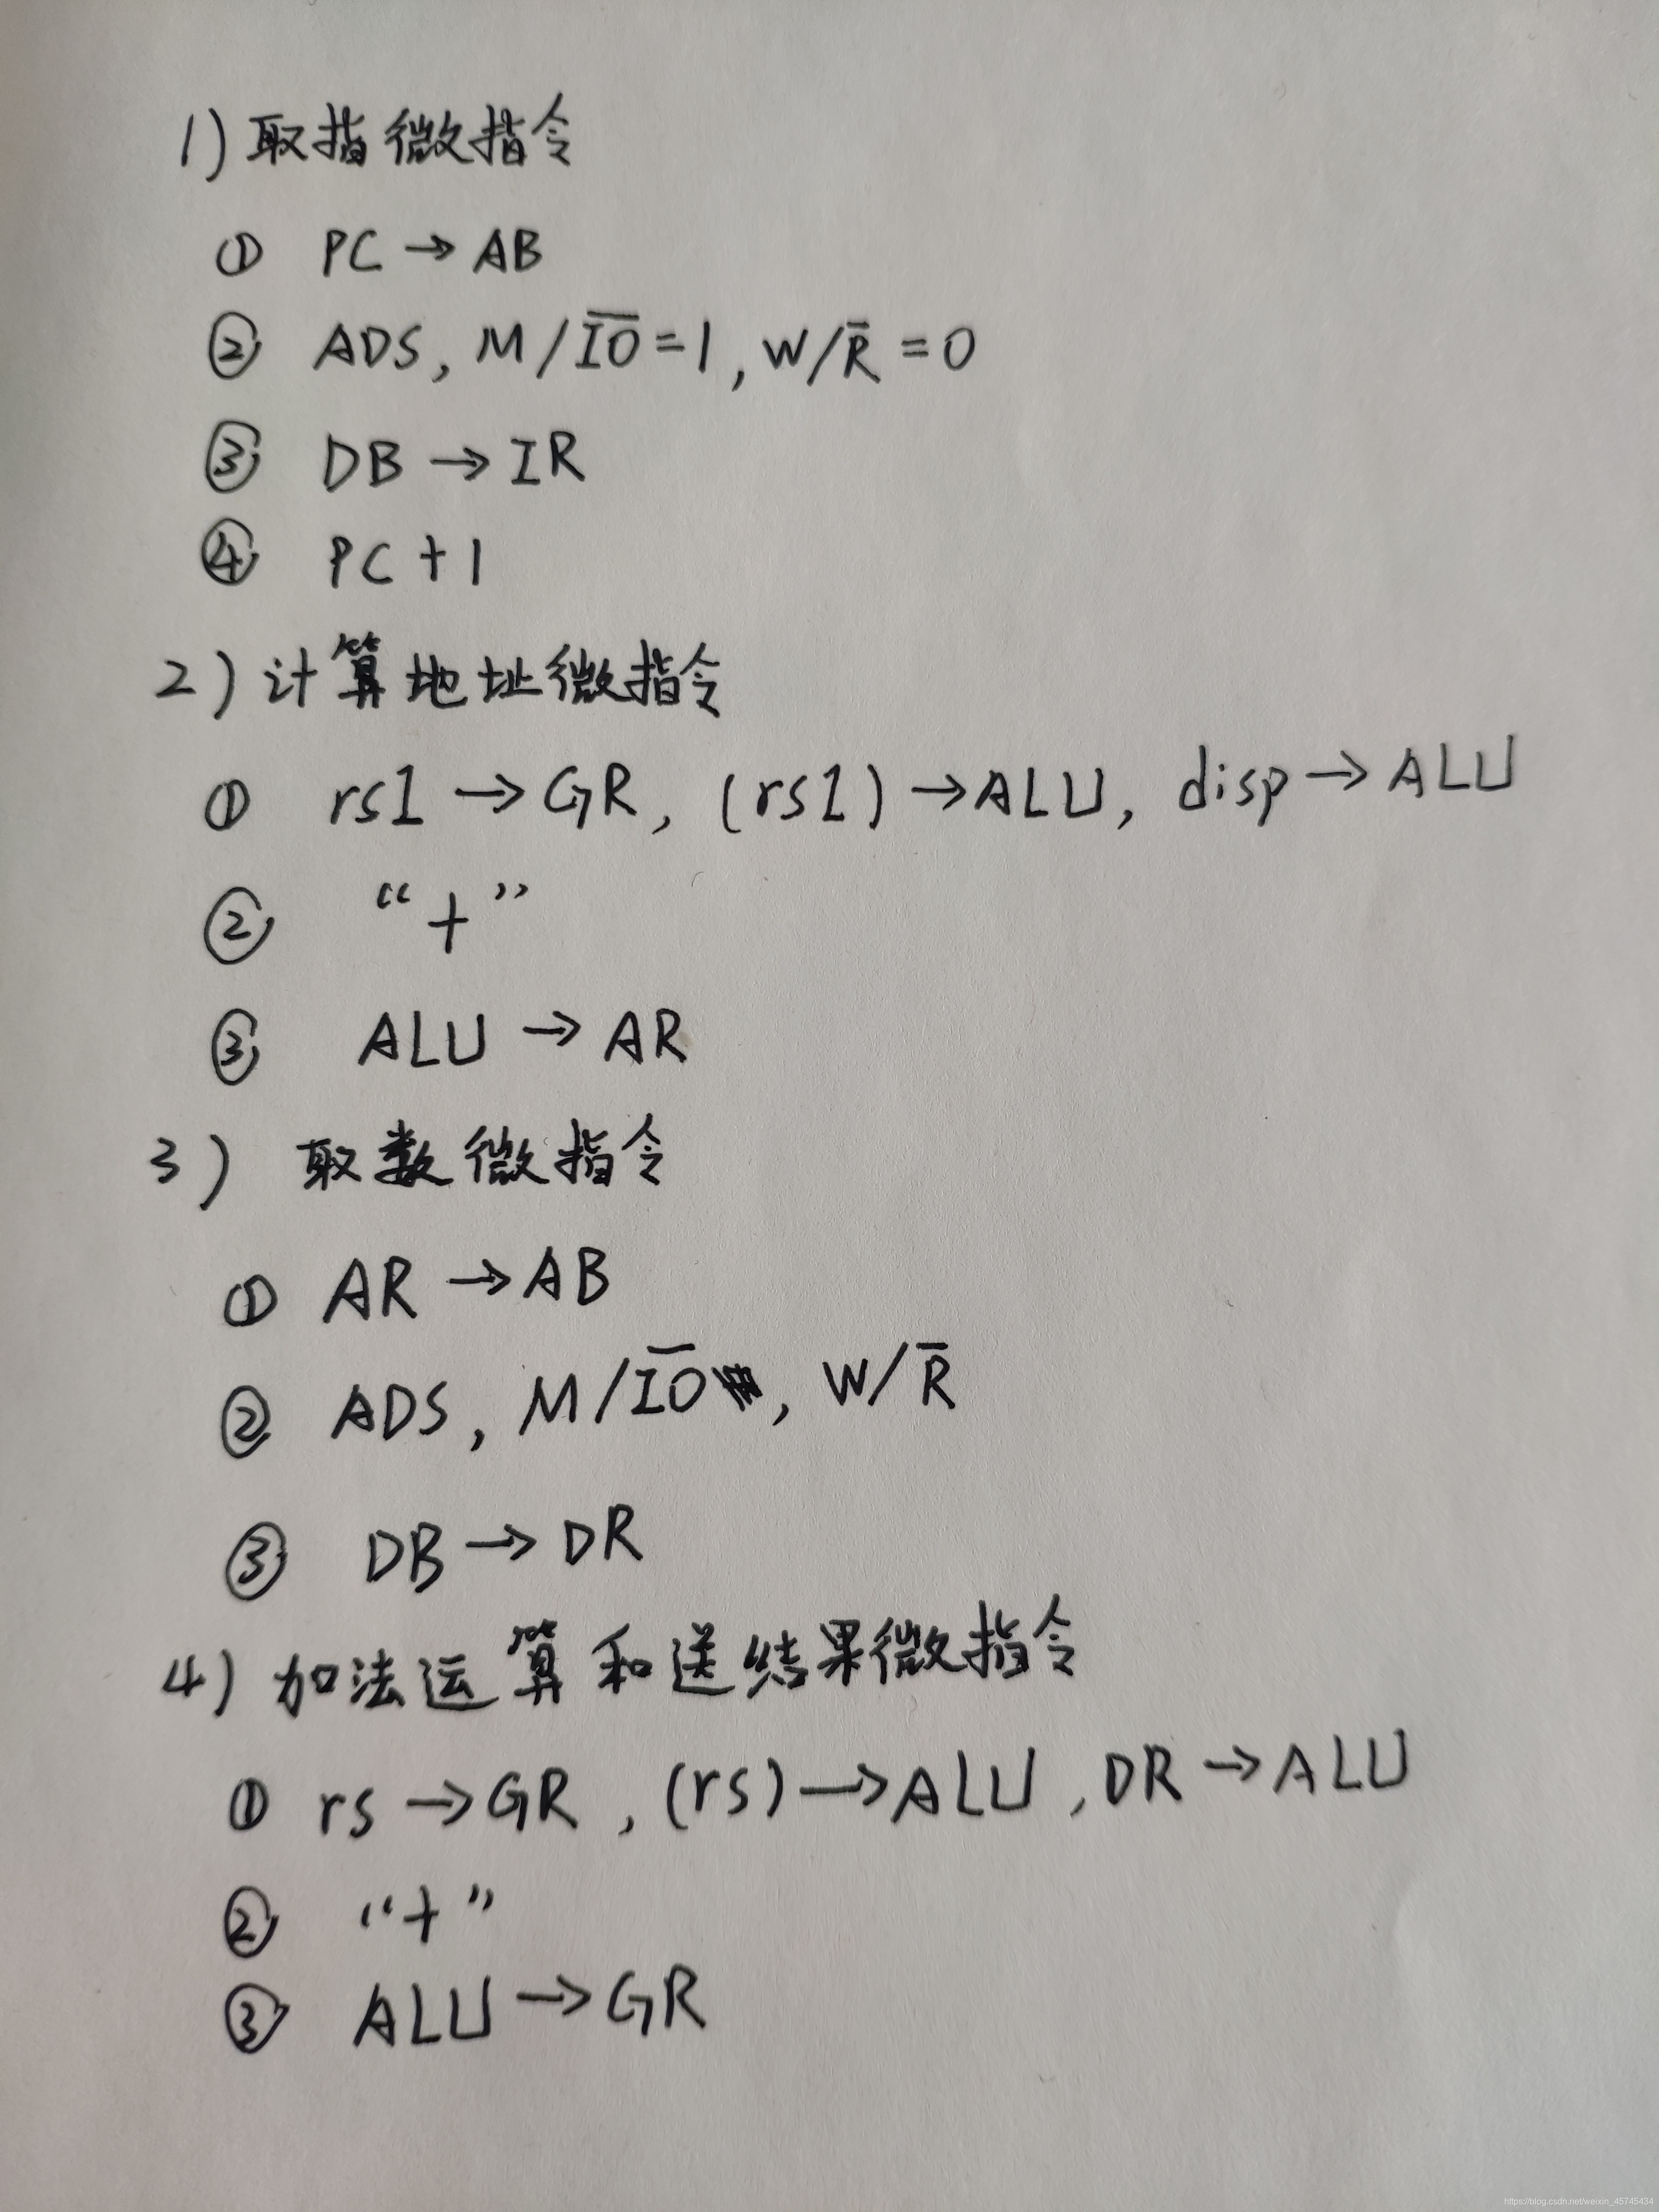 1) 取指微指令
① PC → AB
② ADS, M/I̅O̅=1, W/R̅=0
③ DB → IR
④ PC+1
2) 计算地址微指令
① rs1 → GR, (rs1) → ALU, disp → ALU
② “+”
③ ALU → AR
3) 取数微指令
① AR → AB
② ADS, M/I̅O̅, W/R̅
③ DB → DR
4) 加法运算和送结果微指令
① rs → GR, (rs) → ALU, DR → ALU
② “+”
③ ALU → GR
https://blog.csdn.net/weixin_45745434